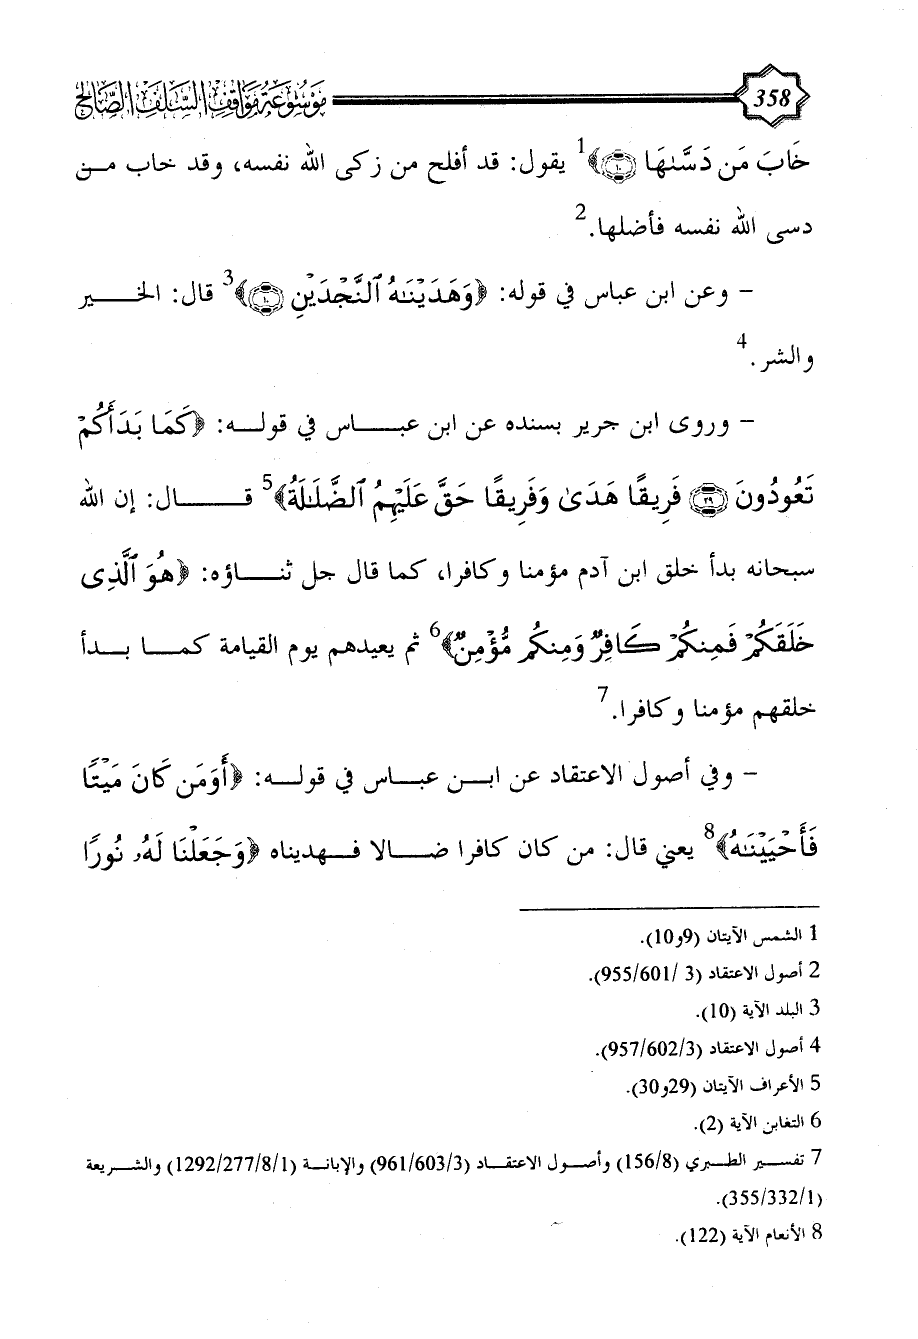 358 موسوعة مواقف السلف الصالح
خَابَ مَن دَسَّىٰهَا ۝١٠﴾1 يقول: قد أفلح من زكى الله نفسه، وقد خاب مـن
دسى الله نفسه فأضلها.2
– وعن ابن عباس في قوله: ﴿وَهَدَيْنَٰهُ ٱلنَّجْدَيْنِ ۝١٠﴾3 قال: الخـــير
والشر.4
– وروى ابن جرير بسنده عن ابن عبـــاس في قولـه: ﴿كَمَا بَدَأَكُمْ
تَعُودُونَ ۝٢٩ فَرِيقًا هَدَىٰ وَفَرِيقًا حَقَّ عَلَيْهِمُ ٱلضَّلَٰلَةُ﴾5 قـــال: إن الله
سبحانه بدأ خلق ابن آدم مؤمنا وكافرا، كما قال جل ثنـــاؤه: ﴿هُوَ ٱلَّذِى
خَلَقَكُمْ فَمِنكُمْ كَافِرٌ وَمِنكُم مُّؤْمِنٌ﴾6 ثم يعيدهم يوم القيامة كمـــا بـدأ
خلقهم مؤمنا وكافرا.7
– وفي أصول الاعتقاد عن ابـن عبـاس في قولـه: ﴿أَوَمَن كَانَ مَيْتًا
فَأَحْيَيْنَٰهُ﴾8 يعني قال: من كان كافرا ضـــالا فـهديناه ﴿وَجَعَلْنَا لَهُۥ نُورًا
1 الشمس الآيتان (9و10).
2 أصول الاعتقاد (3 /955/601).
3 البلد الآية (10).
4 أصول الاعتقاد (957/602/3).
5 الأعراف الآيتان (29و30).
6 التغابن الآية (2).
7 تفسـير الطـبري (156/8) وأصـول الاعتقـاد (961/603/3) والإبانـة (1292/277/8/1) والشـريعة
(355/332/1).
8 الأنعام الآية (122).